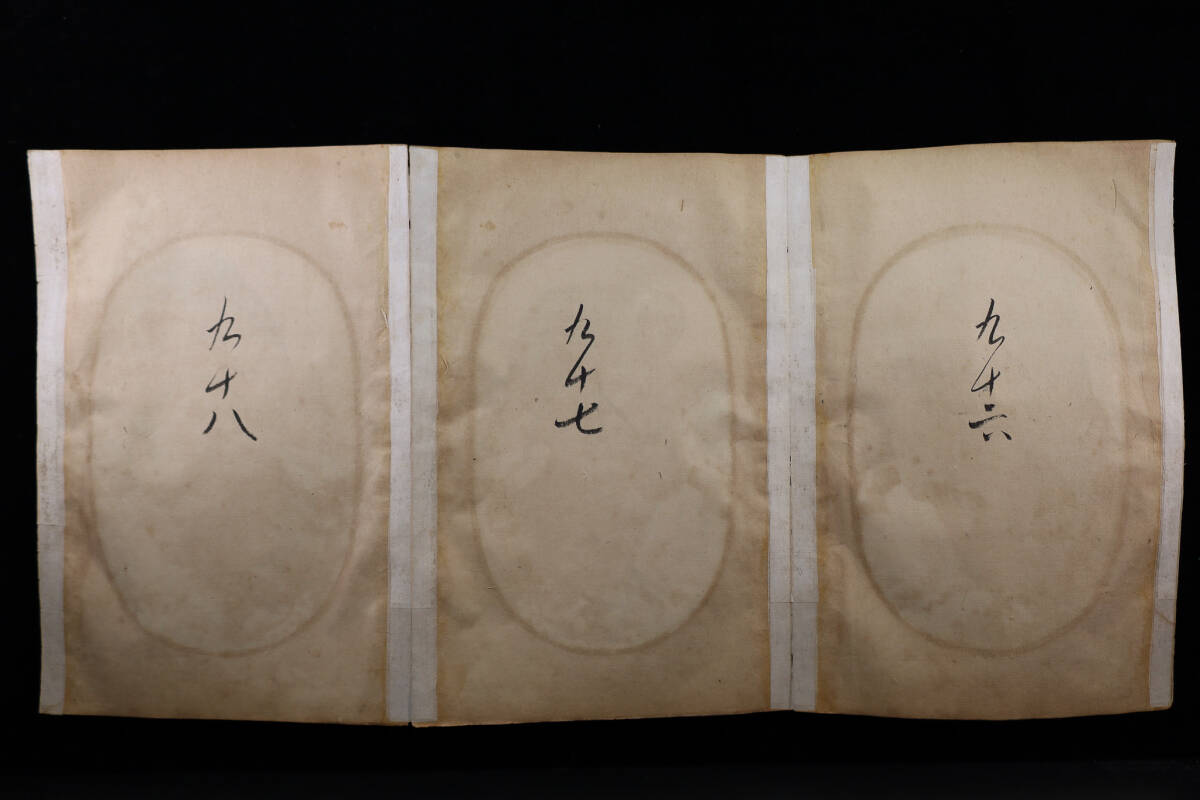 九十六
九十七
九十八